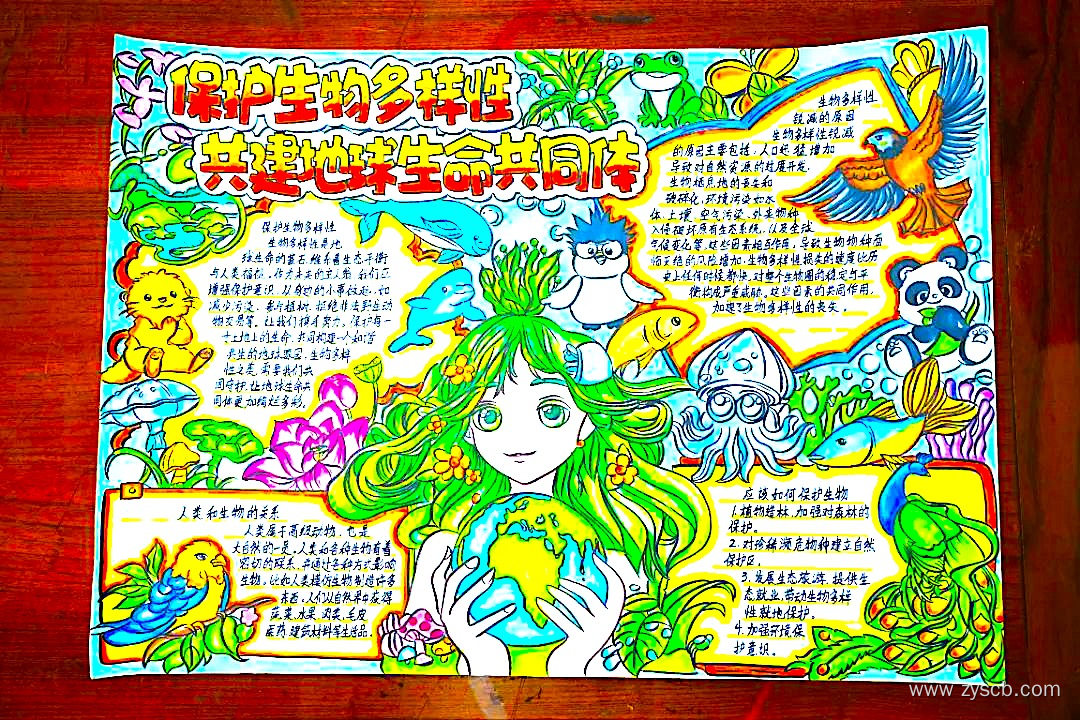 保护生物多样性
共建地球生命共同体
保护生物多样性
生物多样性是地
球生命的基石,维系着生态平衡
与人类福祉,作为未来的主人翁,我们应
增强保护意识,从身边的小事做起,如
减少污染、参与植树、拒绝非法野生动
物交易等,让我们携手努力,保护每一
寸土地上的生命,共同构建一个和谐
共生的地球家园,生物多样
性之美,需要我们共
同守护,让地球生命共
同体更加绚烂多彩。
生物多样性
锐减的原因
生物多样性锐减
的原因主要包括:人口迅猛增加
导致对自然资源的过度开发,
生物栖息地的丧失和
破碎化,环境污染如水
体、土壤、空气污染、外来物种
入侵破坏原有生态系统,以及全球
气候变化等,这些因素相互作用,导致生物物种面
临灭绝的风险增加,生物多样性损失的速度比历
史上任何时候都快,对整个生物圈的稳定与平
衡构成严重威胁。这些因素的共同作用,
加速了生物多样性的丧失。
人类和生物的关系
人类属于高级动物,也是
大自然的一员,人类和各种生物有着
密切的联系,并通过各种方式影响
生物。比如人类模仿生物制造许多
东西,人们从自然界中获得
蔬菜、水果、肉类、毛皮
医药、建筑材料等生活品。
应该如何保护生物
1.植物造林,加强对森林的
保护。
2.对珍稀濒危物种建立自然
保护区。
3.发展生态旅游,提供生
态就业,带动生物多样
性就地保护。
4.加强环境保
护意识。
www.zyscb.com